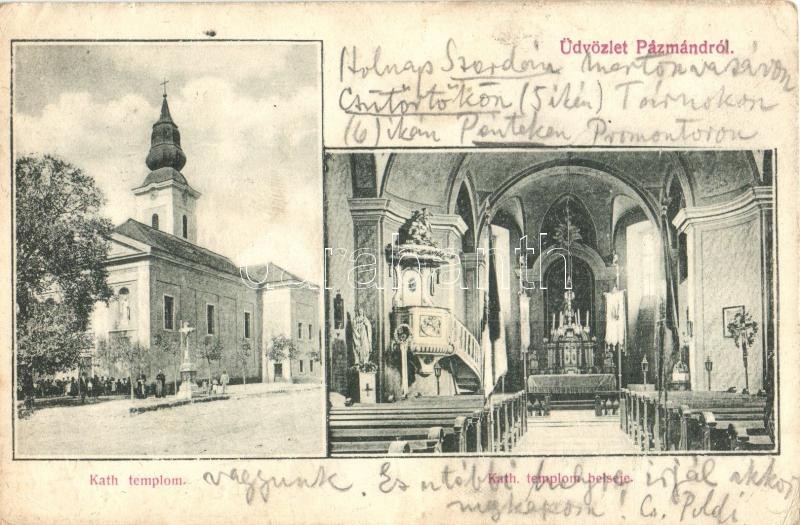 Üdvözlet Pázmándról.
Holnap Szerdán Martonvásáron
Csütörtökön (5 ikén) Tárnokon
(6) ikán Pénteken Promontoron
Kath templom.
Kath. templom belseje.
vagyunk. És utóbbi helyre irjál akkor
megkapom! Cs. Poldi
darabanth